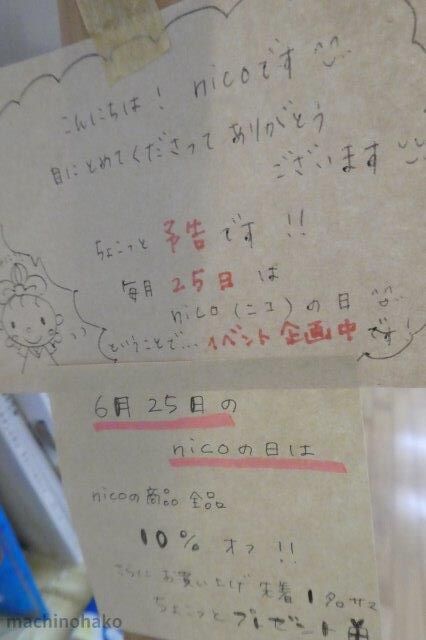 こんにちは! nicoです
目にとめてくださって ありがとう
ございます
ちょこっと 予告 です !!
毎月 25日 は
nico (ニコ) の日
ということで... イベント企画中 です!
6月 25日の
nicoの日は
nicoの商品 全品
10% オフ !!
さらに お買い上げ 先着 1名サマ
ちょこっと プレゼント
machinohako